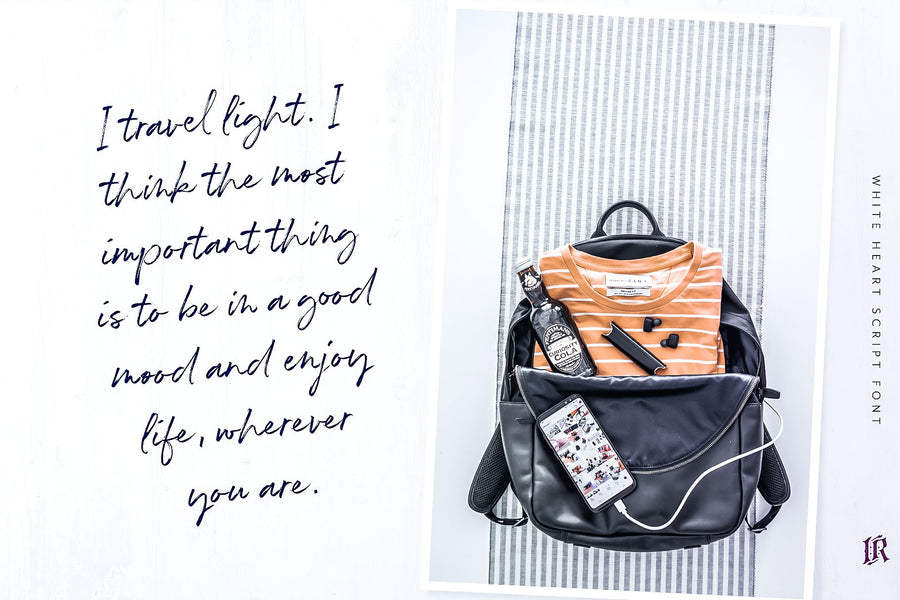 I travel light. I
think the most
important thing
is to be in a good
mood and enjoy
life, wherever
you are.
ZARA
CURIOSITY
COLA
WHITE HEART SCRIPT FONT